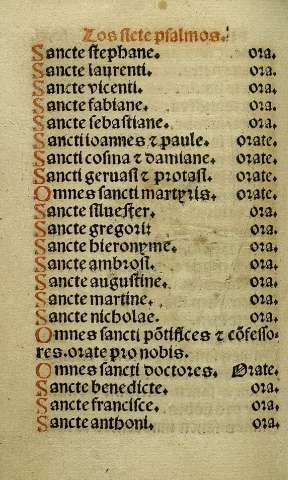 Los siete psalmos.
Sancte stephane. ora.
Sancte laurenti. ora.
Sancte vicenti. ora.
Sancte fabiane. ora.
Sancte sebastiane. ora.
Sancti ioannes ⁊ paule. orate.
Sancti cosma ⁊ damiane. orate.
Sancti geruasi ⁊ protasi. orate.
Omnes sancti martyris. orate.
Sancte siluester. ora.
Sancte gregori: ora.
Sancte hieronyme. ora.
Sancte ambrosi. ora.
Sancte augustine. ora.
Sancte martine. ora.
Sancte nicholae. ora.
Omnes sancti põtifices ⁊ cõfesso-
res. orate pro nobis.
Omnes sancti doctores. Orate.
Sancte benedicte. ora.
Sancte francisce. ora.
Sancte anthoni. ora.